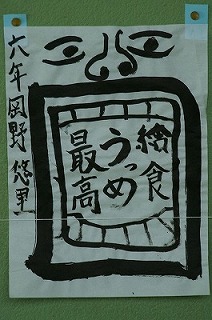 給食
うっめ
最高
六年岡野悠里